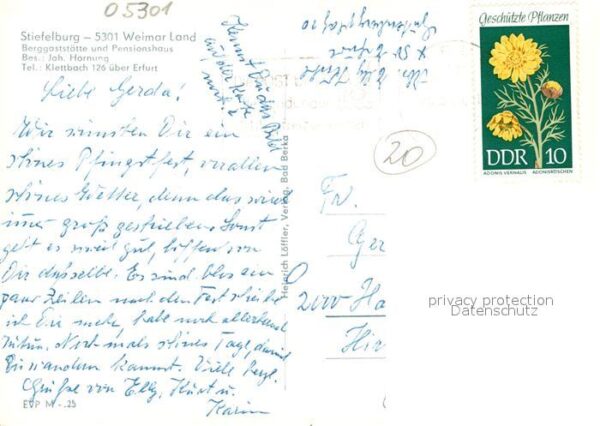 05301
Stiefelburg – 5301 Weimar Land
Berggaststätte und Pensionshaus
Bes.: Joh. Hornung
Tel.: Klettbach 126 über Erfurt
Liebe Gerda!
Wir wünschen Dir ein
schönes Pfingstfest, vor allem
schönes Wetter denn das wird
immer groß geschrieben. Sonst
geht es uns gut, hoffen von
Dir dasselbe. Es sind blos ein
paar Zeilen nach dem Fest schreibe
ich Dir mehr, habe noch allerhand
zu tun. Nochmals schöne Tage,
kommt. Viele herzl.
Grüße von Elly, Kurt u.
Karin
EVP M -.25
Kennst Du das Bild
auf der Karte
Heinrich Löffler, Verlag, Bad Berka
Elly
Erfurt
20
Geschützte Pflanzen
DDR 10
ADONIS VERNALIS ADONISRÖSCHEN
Fr.
Ger
Ha
Hir
privacy protection
Datenschutz